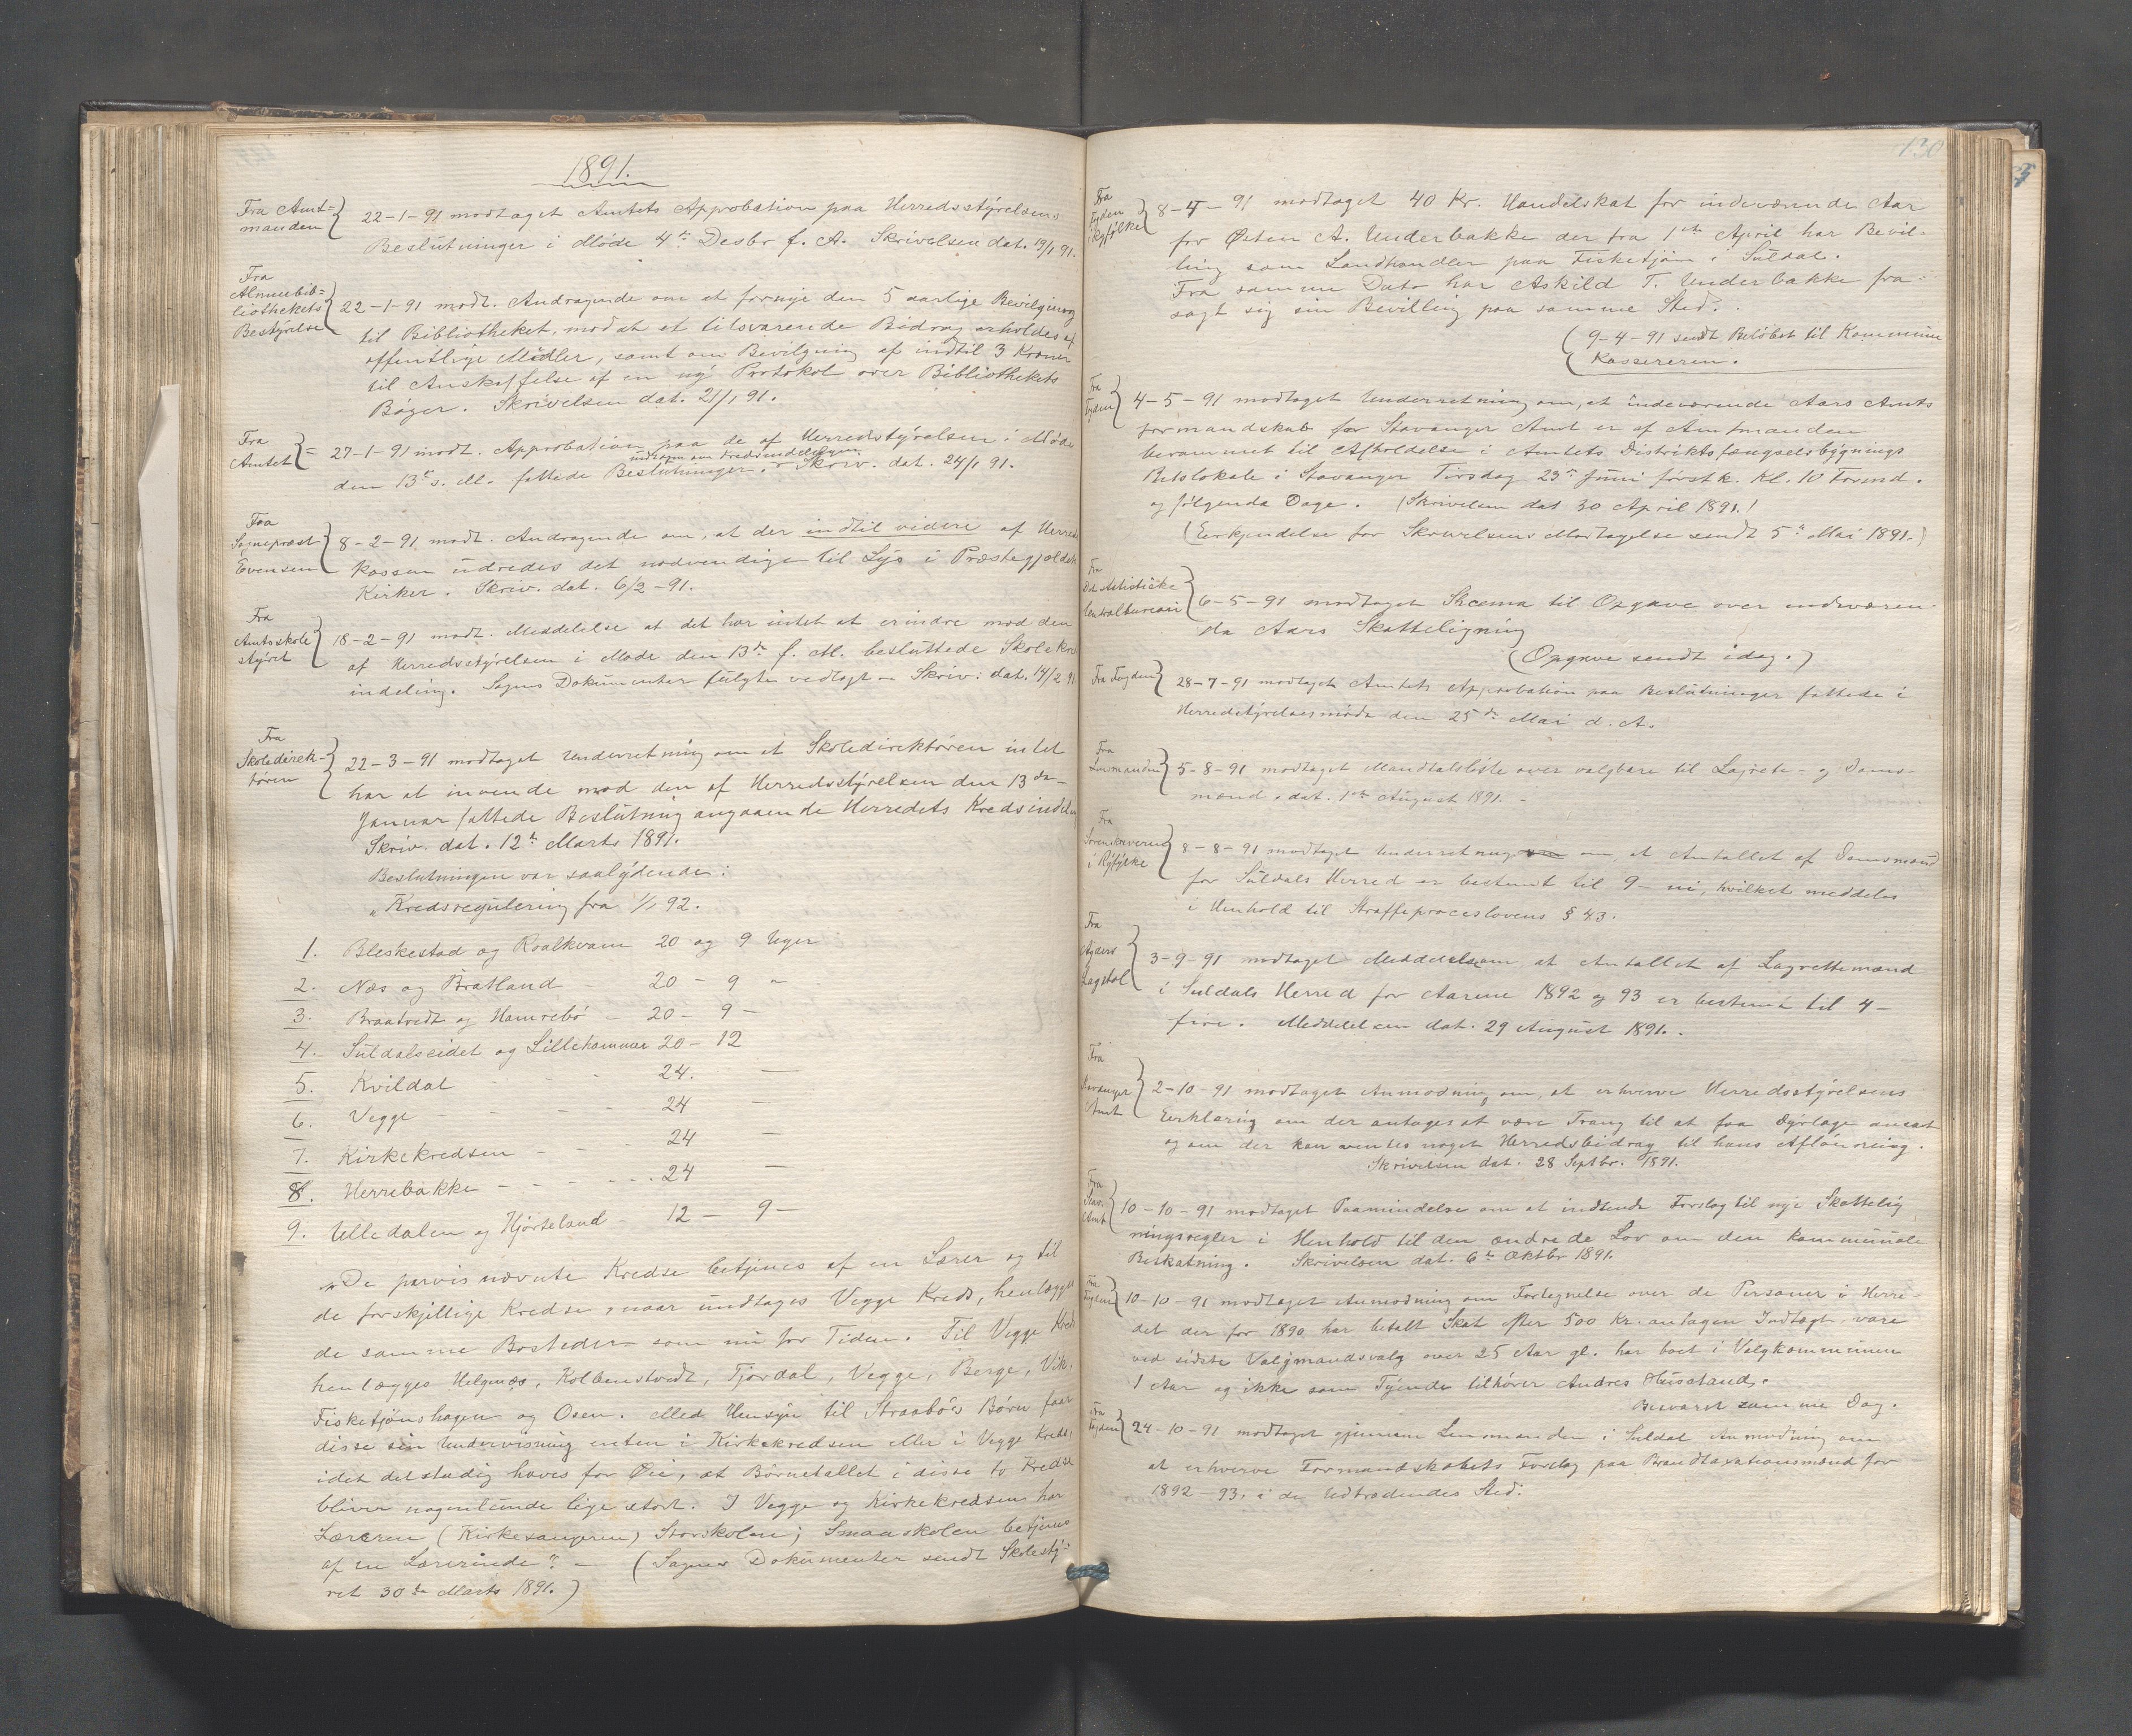 1891.
Fra Amt-
manden
22-1-91 modtaget Amtets Approbation paa Herredsstyrelsens
Beslutninger i Møde 4de Desbr f. A. Skrivelsen dat. 19/1 91.
Fra
Almuebib-
liothekets
Bestyrelse
22-1-91 modt. Andragende om at fornye den 5 aarlige Bevilgning
til Bibliotheket, mod at et tilsvarende Bidrag erholdes af
offentlige Midler, samt om Bevilgning af indtil 3 Kroner
til Anskaffelse af en ny Protokol over Bibliothekets
Bøger. Skrivelsen dat. 21/1 91.
Fra
Amtet
27-1-91 modt. Approbation paa de af Herredstyrelsen i Møde
undtagen om Kredsinddelingen
den 13de s. M. fattede Beslutninger. Skriv. dat. 24/1 91.
Fra
Sognepræst
Evensen
8-2-91 modt. Andragende om, at der indtil videre af Herreds
kassen udredes det nødvendige til Lys i Præstegjeldets
Kirker. Skriv. dat. 6/2-91.
Fra
Amtsskole
styret
18-2-91 modt. Meddelelse at det har intet at erindre mod den
af Herredsstyrelsen i Møde den 13de f. M. besluttede Skolekreds
indeling. Sagens Dokumenter fulgte vedlagt. Skriv. dat. 14/2 91
Fra
Skoledirek-
tøren
22-3-91 modtaget Underretning om at Skoledirektøren intet
har at invende mod den af Herredsstyrelsen den 13de
Januar fattede Beslutning angaaende Herredets Kredsinddel
Skriv. dat. 12te Marts 1891.
Beslutningen var saalydende:
"Kredsregulering fra 1/1 92.
1. Bleskestad og Roalkvam 20 og 9 Uger
2. Næs og Bratland - 20 - 9 "
3. Braatvedt og Hamrebø - 20 - 9 -
4. Suldalseidet og Lillehammer 20 - 12
5. Kvildal - - - 24. —
6. Vegge - - - - 24 —
7. Kirkekredsen - - - 24 —
8. Herrebakke - - - - - 24 —
9. Ulledalen og Hjorteland - 12 - 9 -
"De parvis nævnte Kredse betjenes af en Lærer og til
de forskjellige Kredse, naar undtages Vegge Kreds, henlægges
de samme Bosteder som nu for Tiden. Til Vegge Kreds
henlægges Helgenæs, Kolbenstvedt, Tjordal, Vegge, Berge, Vik,
Fisketjønshagen og Osen. Med Hensyn til Straabøs Børn faar
disse sin Undervisning enten i Kirkekredsen eller i Vegge Kreds,
idet det stadig haves for Øie, at Børnetallet i disse to Kredse
bliver nogenlunde lige stort. I Vegge og Kirkekredsen har
Læreren (Kirkesangeren) Storskolen; Smaaskolen betjenes
af en Lærerinde". — (Sagens Dokumenter sendt Skolesty-
ret 30te Marts 1891.)
130
Fra
Fogden
i Ryfylke
8-4-91 modtaget 40 Kr. Handelskat for indeværende Aar
for Østen A. Underbakke der fra 1ste April har Bevil-
ling som Landhandler paa Fisketjøn i Suldal.
Fra samme Dato har Askild T. Underbakke fra-
sagt sig sin Bevilling paa samme Sted.
(9-4-91 sendt Beløbet til Kommune
Kassereren.
Fra
Fogden
4-5-91 modtaget Underretning om, at indeværende Aars Amts
formandskab for Stavanger Amt er af Amtmanden
berammet til Afholdelse i Amtets Distriktsfængselsbygnings
Retslokale i Stavanger Tirsdag 23de Juni førstk. Kl. 10 Formd.
og følgende Dage. (Skrivelsen dat 30 April 1891.)
(Erkjendelse for Skrivelsens Modtagelse sendt 5te Mai 1891.)
Fra
Det statistiske
Centralbureau
6-5-91 modtaget Skema til Opgave over indeværen-
de Aars Skatteligning
(Opgave sendt idag.)
Fra Fogden
28-7-91 modtaget Amtets Approbation paa Beslutninger fattede i
Herredstyrelsesmøde den 25de Mai d. A.
Fra
Lensmanden
5-8-91 modtaget Mandtalsliste over valgbare til Lagrete- og Doms-
mænd, dat. 1ste August 1891. -
Fra
Sorenskriveren
i Ryfylke
8-8-91 modtaget Underretning om, at Antallet af Domsmænd
for Suldals Herred er bestemt til 9 - ni, hvilket meddeles
i Henhold til Straffeproceslovens § 43.
Fra
Agders
Lagstol
3-9-91 modtaget Meddelelse om, at Antallet af Lagrettemænd
i Suldals Herred for Aarene 1892 og 93 er bestemt til 4 -
fire. Meddelelsen dat. 29 August 1891.
Fra
Stavanger
Amt
2-10-91 modtaget Anmodning om, at erhverve Herredsstyrelsens
Erklæring om der antages at være Trang til at faa Dyrlæge ansat
og om der kan ventes noget Herredsbidrag til hans Aflønning.
Skrivelsen dat. 28 Septbr. 1891.
Fra
Stav.
Amt
10-10-91 modtaget Paamindelse om at indsende Forslag til nye Skattelig
ningsregler i Henhold til den ændrede Lov om den kommunale
Beskatning. Skrivelsen dat. 6te Oktbr 1891.
Fra
Fogden
10-10-91 modtaget Anmodning om Fortegnelse over de Personer i Herre-
det der for 1890 har betalt Skat efter 500 Kr. antagen Indtægt, vare
ved sidste Valgmandsvalg over 25 Aar gl. har boet i Valgkommunen
1 Aar og ikke som Tyende tilhører Andres Husstand.
Besvaret samme Dag.
Fra
Fogden
24-10-91 modtaget gjennem Lensmanden i Suldal Anmodning om
at erhverve Formandskabets Forslag paa Brandtaxationsmænd for
1892-93, i de Udtrædendes Sted.